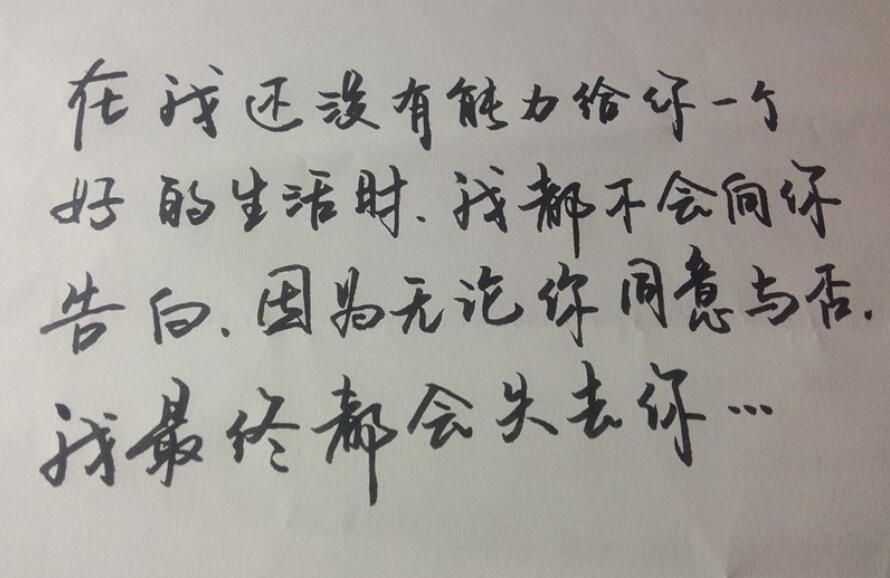 在我还没有能力给你一个
好的生活时、我都不会向你
告白、因为无论你同意与否.
我最终都会失去你…